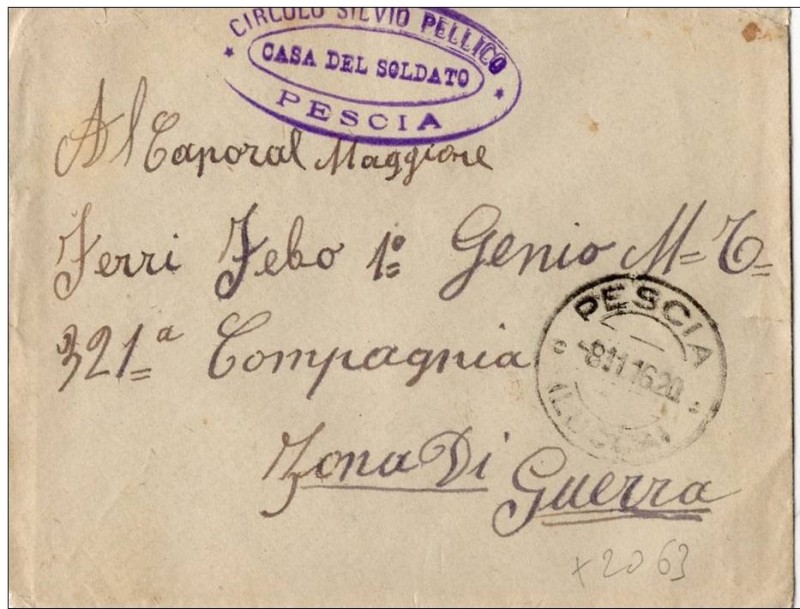 CIRCOLO SILVIO PELLICO
CASA DEL SOLDATO
PESCIA
Al Caporal Maggiore
Ferri Febo 1º Genio M= T=
321=ª Compagnia
PESCIA
-8.11.16.20
(LUCCA)
Zona Di
Guerra
x 2063